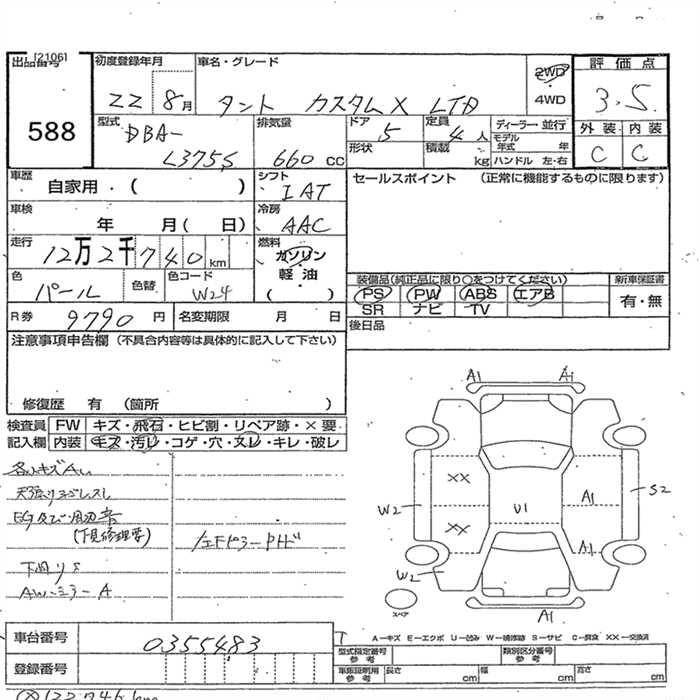 [2106]
出品番号
588
初度登録年月
22 8月
車名・グレード
タント カスタムX LTD
2WD
4WD
評価点
3.5
外装 内装
C C
型式
DBA-
L375S
排気量
660 cc
ドア
5
定員
4人
形状
積載
kg
ディーラー・並行
モデル年式 年
ハンドル 左・右
車歴
自家用・( )
シフト
IAT
セールスポイント (正常に機能するものに限ります)
車検
年 月( 日)
冷房
AAC
走行
12万2千740km
燃料
ガソリン
軽油
( )
色
パール
色替
色コード
W24
装備品(純正品に限り○をつけてください)
PS PW ABS エアB
SR ナビ TV
新車保証書
有・無
R券
9790円
名変期限 月 日
後日品
注意事項申告欄(不具合内容等は具体的に記入して下さい)
修復歴 有 (箇所 )
検査員
記入欄
FW キズ・飛石・ヒビ割・リペア跡・×要
内装 キズ・汚レ・コゲ・穴・スレ・キレ・破レ
下回りS
AWミラーA
A1 A1
XX
XX
W2
W2
U1
A1
A1
S2
A1
スペア
車台番号
0355483
登録番号
A-キズ E-エクボ U-凹み W-補修跡 S-サビ C-腐食 XX-交換済
型式指定番号
参考
類別区分番号
参考
車庫証明用
参考
長さ cm
幅 cm
高さ cm
122,746km